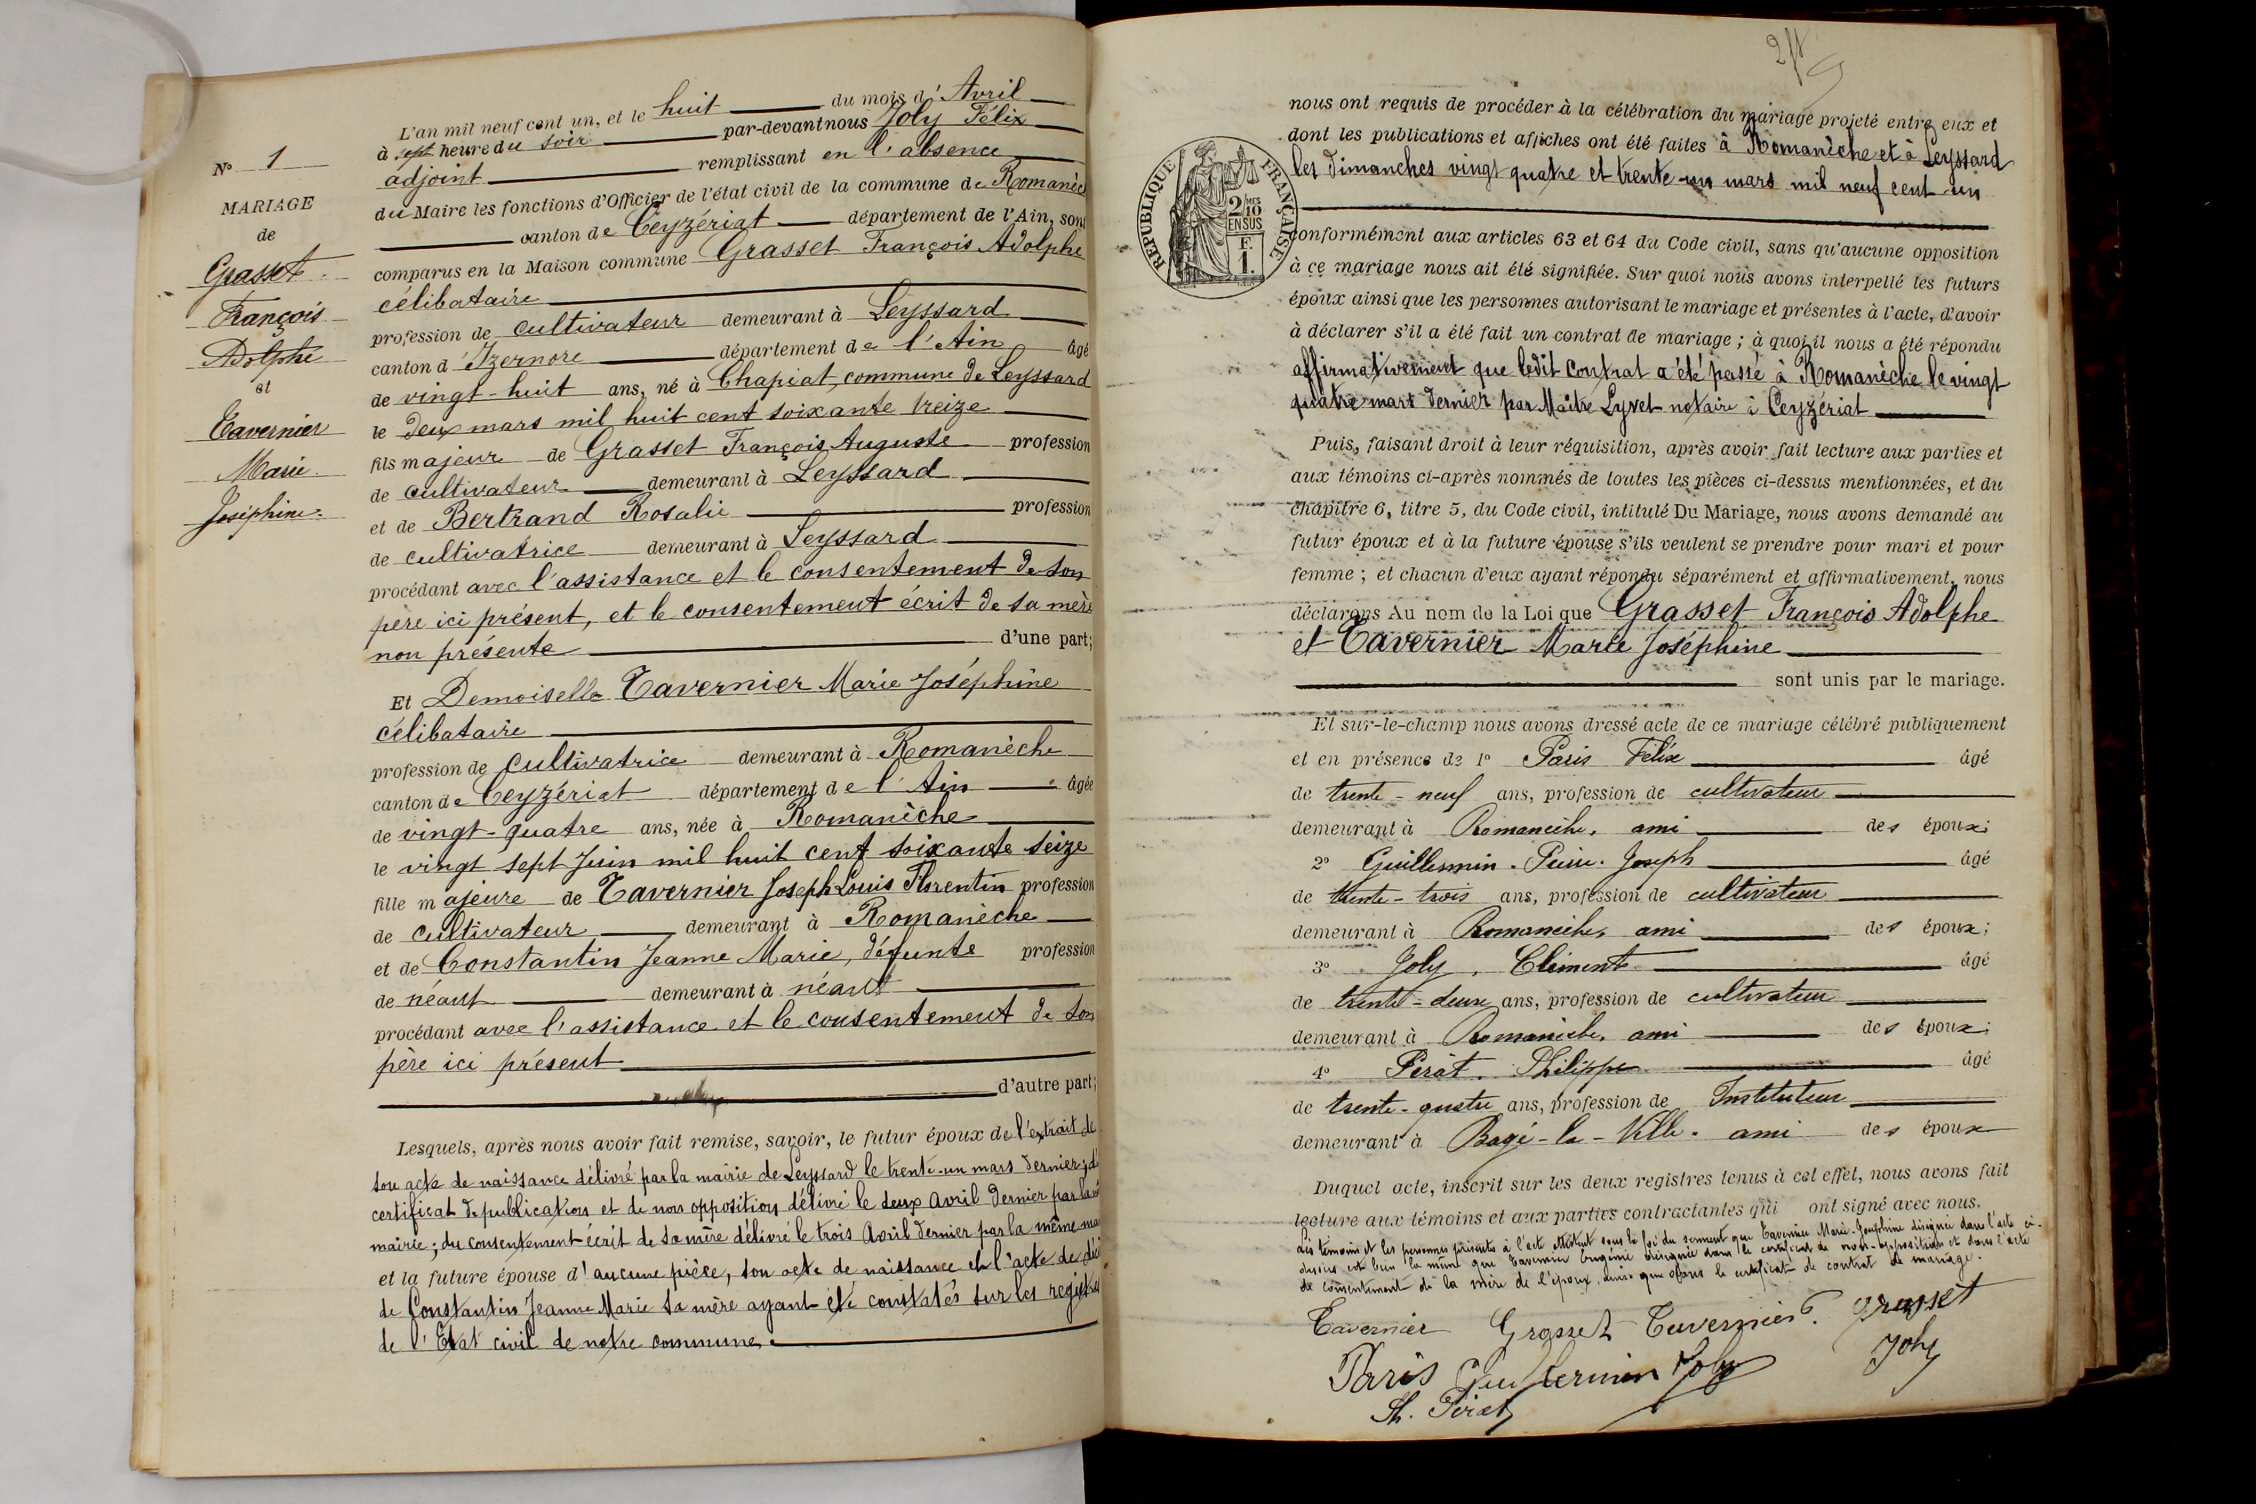 N° 1
MARIAGE
de
Grasset
François
Adolphe
et
Tavernier
Marie
Joséphine
L'an mil neuf cent un, et le huit du mois d'Avril
à sept heure du soir par-devant nous Joly Félix
adjoint remplissant en l'absence
du Maire les fonctions d'Officier de l'état civil de la commune de Romanèc
canton de Ceyzériat département de l'Ain, sont
comparus en la Maison commune Grasset François Adolphe
célibataire
profession de cultivateur demeurant à Leyssard
canton d'Izernore département de l'Ain âgé
de vingt-huit ans, né à Chapiat, commune de Leyssard
le deux mars mil huit cent soixante treize
fils majeur de Grasset François Auguste profession
de cultivateur demeurant à Leyssard
et de Bertrand Rosalie profession
de cultivatrice demeurant à Leyssard
procédant avec l'assistance et le consentement de son
père ici présent, et le consentement écrit de sa mère
non présente d'une part;
Et Demoiselle Tavernier Marie Joséphine
célibataire
profession de cultivatrice demeurant à Romanèche
canton de Ceyzériat département de l'Ain âgée
de vingt-quatre ans, née à Romanèche
le vingt sept Juin mil huit cent soixante seize
fille majeure de Tavernier Joseph Louis Florentin profession
de cultivateur demeurant à Romanèche
et de Constantin Jeanne Marie, défunte profession
de néant demeurant à néant
procédant avec l'assistance et le consentement de son
père ici présent
d'autre part;
Lesquels, après nous avoir fait remise, savoir, le futur époux de l'extrait de
son acte de naissance délivré par la mairie de Leyssard le trente-un mars dernier; d'
certificat de publication et de non opposition délivré le deux Avril dernier par la
mairie; du consentement écrit de sa mère délivré le trois Avril dernier par la même
et la future épouse d'aucune pièce, son acte de naissance et l'acte de
de Constantin Jeanne Marie sa mère ayant été constatés sur les registres
de l'Etat civil de notre commune.
nous ont requis de procéder à la célébration du mariage projeté entre eux et
dont les publications et affiches ont été faites à Romanèche et à Leyssard
les dimanches vingt quatre et trente-un mars mil neuf cent un
REPUBLIQUE FRANÇAISE
2/10 MES
EN SUS
F.
1.
conformément aux articles 63 et 64 du Code civil, sans qu'aucune opposition
à ce mariage nous ait été signifiée. Sur quoi nous avons interpellé les futurs
époux ainsi que les personnes autorisant le mariage et présentes à l'acte, d'avoir
à déclarer s'il a été fait un contrat de mariage; à quoi il nous a été répondu
affirmativement que ledit contrat a été passé à Romanèche le vingt
quatre mars dernier par Maître Lyvet notaire à Ceyzériat
Puis, faisant droit à leur réquisition, après avoir fait lecture aux parties et
aux témoins ci-après nommés de toutes les pièces ci-dessus mentionnées, et du
chapitre 6, titre 5, du Code civil, intitulé Du Mariage, nous avons demandé au
futur époux et à la future épouse s'ils veulent se prendre pour mari et pour
femme; et chacun d'eux ayant répondu séparément et affirmativement, nous
déclarons Au nom de la Loi que Grasset François Adolphe
et Tavernier Marie Joséphine
sont unis par le mariage.
Et sur-le-champ nous avons dressé acte de ce mariage célébré publiquement
et en présence de 1° Paris Félix âgé
de trente-neuf ans, profession de cultivateur
demeurant à Romanèche, ami des époux;
2° Guillermin Pierre Joseph âgé
de trente-trois ans, profession de cultivateur
demeurant à Romanèche, ami des époux;
3° Joly Clément âgé
de trente-deux ans, profession de cultivateur
demeurant à Romanèche, ami des époux;
4° Pérat Philippe âgé
de trente-quatre ans, profession de Instituteur
demeurant à Bagé-la-Ville. ami des époux
Duquel acte, inscrit sur les deux registres tenus à cet effet, nous avons fait
lecture aux témoins et aux parties contractantes qui ont signé avec nous.
Les témoins et les personnes présentes à l'acte attestent sous la foi du serment que Tavernier Marie-Joséphine désignée dans l'acte ci-
dessus est bien la même que Tavernier Eugénie désignée dans le certificat de non-opposition et dans l'acte
de consentement de la mère de l'époux, ainsi que dans le certificat de contrat de mariage.
Tavernier Grasset Tavernier Grasset
Paris Guillermin Joly Joly
Ph. Pérat